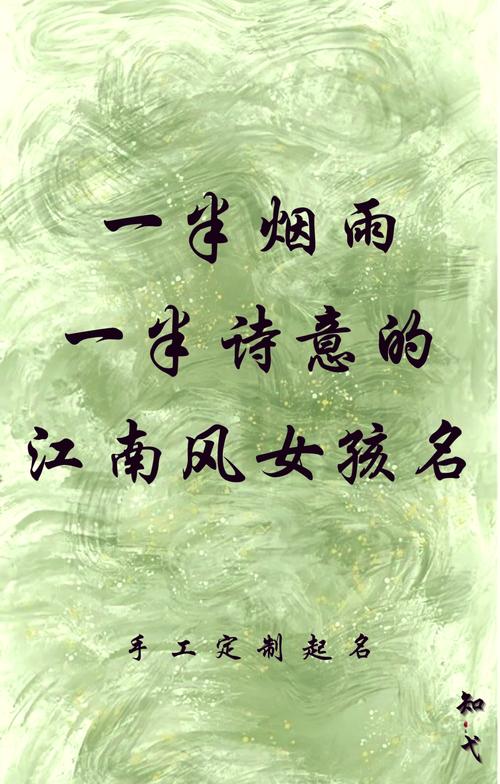 一半烟雨
一半诗意的
江南风女孩名
手工定制起名
知弋